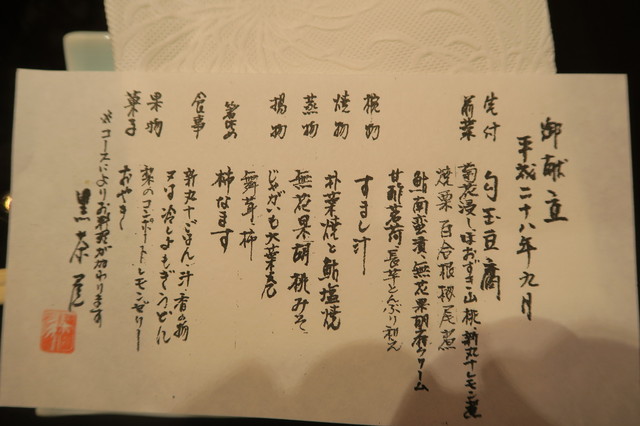 御献立
平成二十八年九月
先付 勾玉豆腐
前菜 菊花浸し 山桃 新丸十レモン煮
焼栗 百合根
鮎南蛮漬 無花果胡麻クリーム
甘酢茗荷 長芋とんぶり和え
椀物 すまし汁
焼物 朴葉焼と鮎塩焼
蒸物 無花果胡桃みそ
揚物 じゃがいも大葉
舞茸 柿
柿なます
食事 新丸十ごはん、汁、香の物
又は 冷しよもぎうどん
果物 梨のコンポートレモンゼリー
菓子 おやき
※コースによりお料理が加わります
黒茶屋